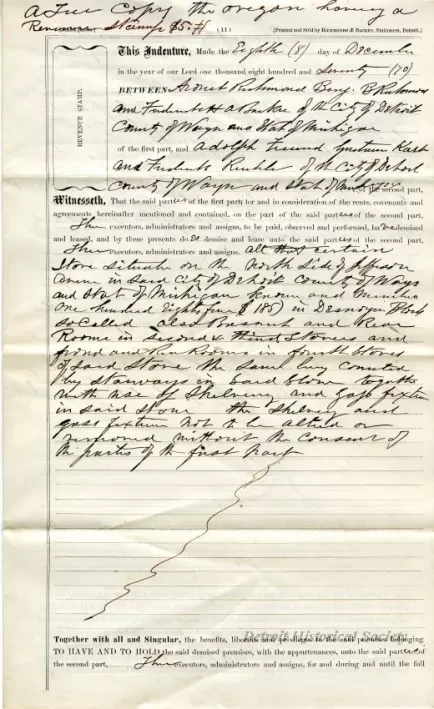 A True Copy the having a
Revenue Stamp $5. (11) [Printed and Sold by Richmonds & Backus, Stationers, Detroit.]
REVENUE STAMP.
This Indenture, Made the Eighth (8) day of December
in the year of our Lord one thousand eight hundred and Seventy (70)
BETWEEN Richmond Benj.
and Frederick A Backus of the City of Detroit
County of Wayn and Stat of Michigan
of the first part, and Adolph Freund
and Frederick of the City of Detroit
County of Wayn and Stat of of the second part,
Witnesseth, That the said parties of the first part for and in consideration of the rents, covenants and
agreements hereinafter mentioned and contained, on the part of the said parties of the second part,
Their executors, administrators and assigns, to be paid, observed and performed, have demised
and leased, and by these presents do demise and lease unto the said parties of the second part,
Their executors, administrators and assigns, all that certain
Store Situate on the North Side of Jefferson
Avenue in said City of Detroit County of Wayn
and Stat of Michigan known and
One hundred Eighty five (185) in Block
so called also Basement and Rear
Rooms in second & third Stories and
front and Rear Rooms in fourth Stories
of said Store the same being
by stairways in said Store together
with use of Shelving and gass fixtures
in said Store the Shelving and
gass fixtures not to be altered or
removed without the Consent of
the parties of the first part
Together with all and Singular, the benefits, liberties and privileges to the said premises belonging
Detroit Historical Society
TO HAVE AND TO HOLD the said demised premises, with the appurtenances, unto the said parties of
the second part, Their executors, administrators and assigns, for and during and until the full